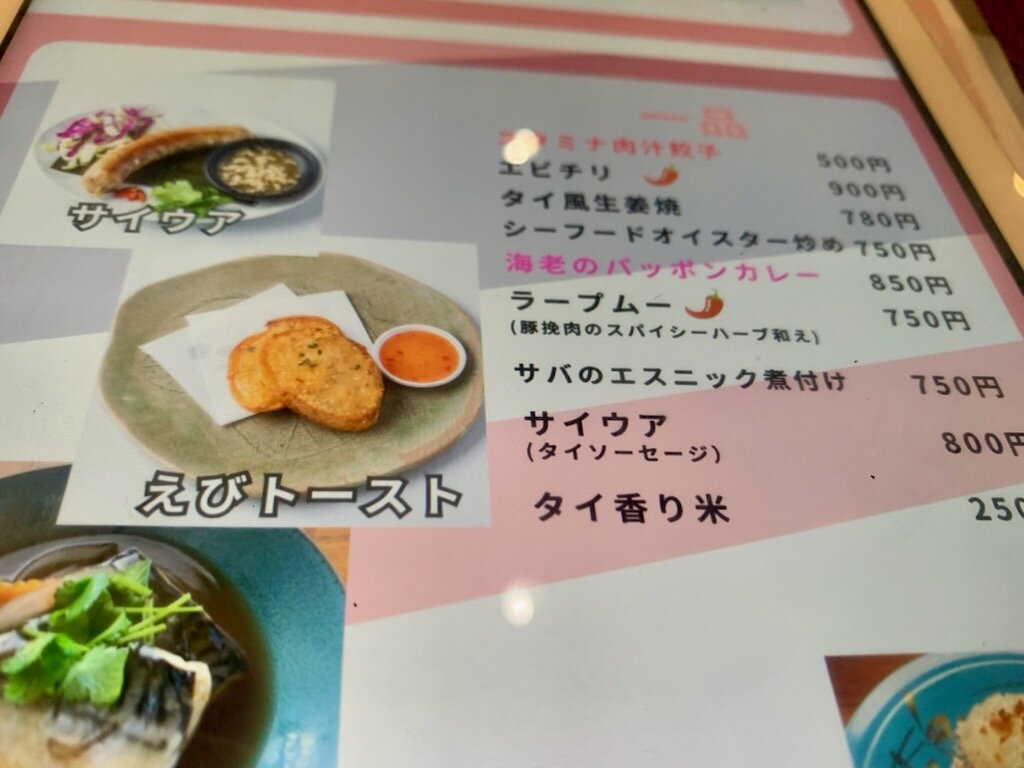 一品
スタミナ肉汁餃子 500円
エビチリ 900円
タイ風生姜焼 780円
シーフードオイスター炒め 750円
海老のパッポンカレー 850円
ラープムー 750円
(豚挽肉のスパイシーハーブ和え)
サバのエスニック煮付け 750円
サイウア 800円
(タイソーセージ)
タイ香り米 250
サイウア
えびトースト